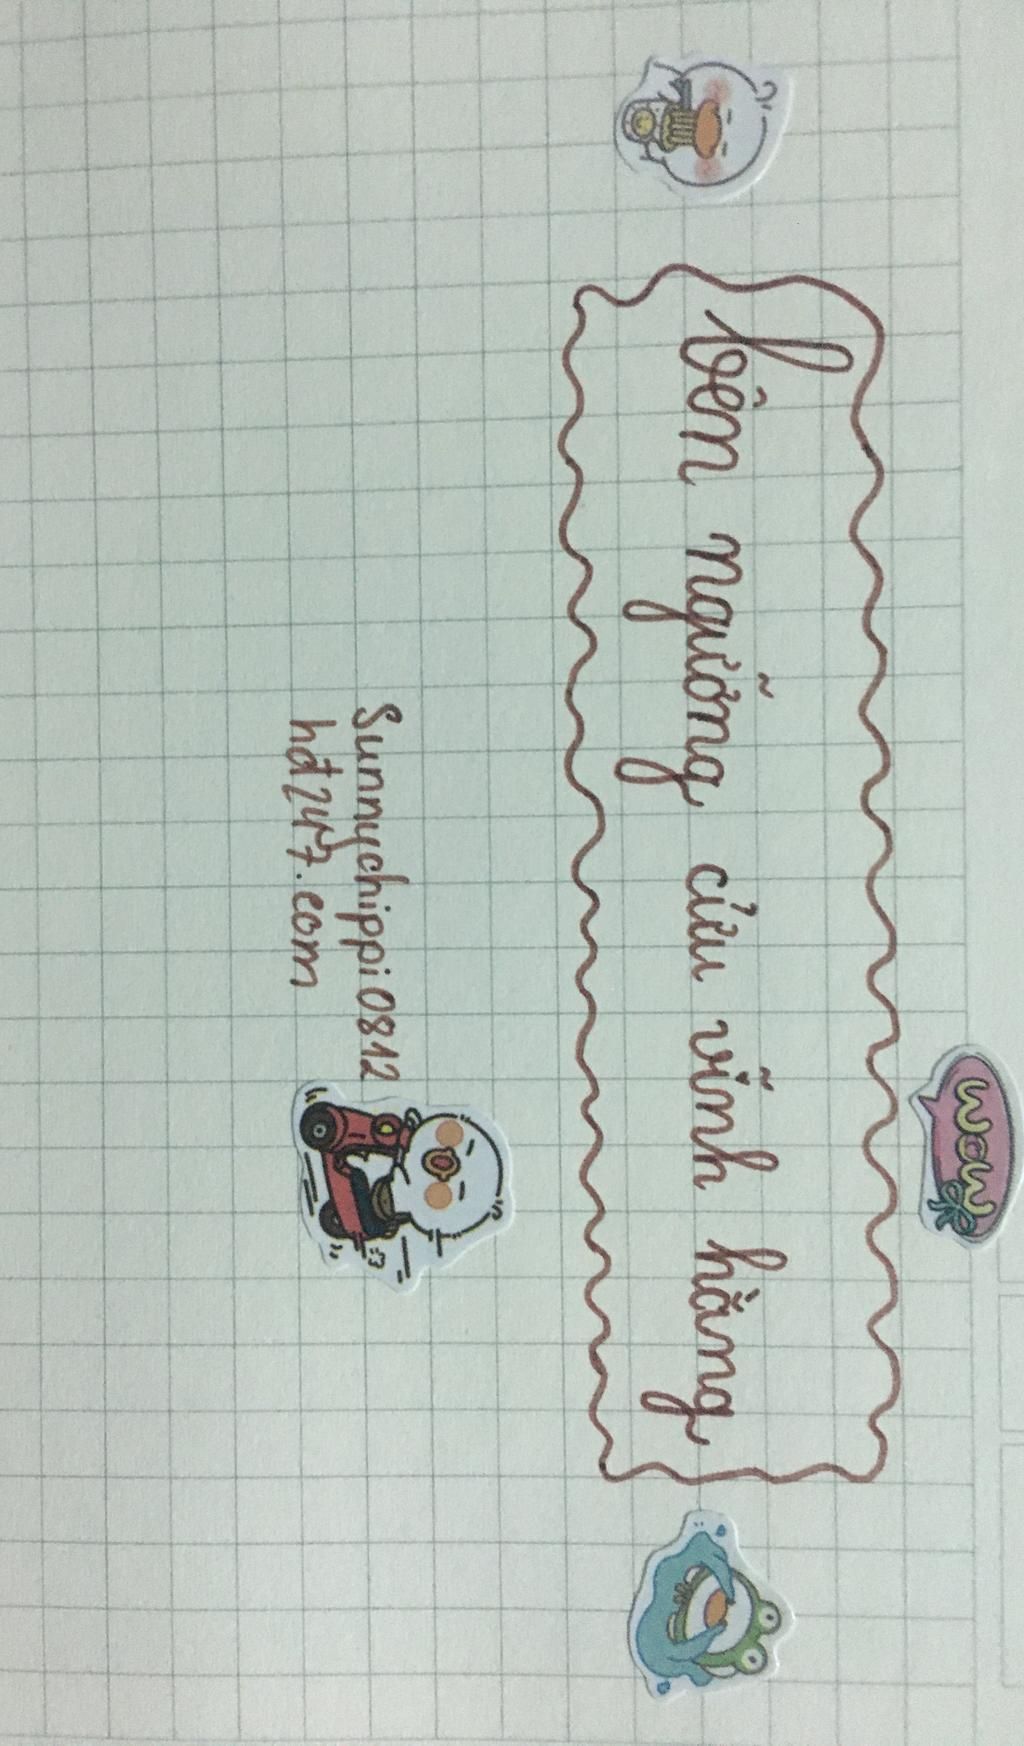 bên ngưỡng cửu vĩnh hằng
Sunnychippi0812
hđ247.com
wow